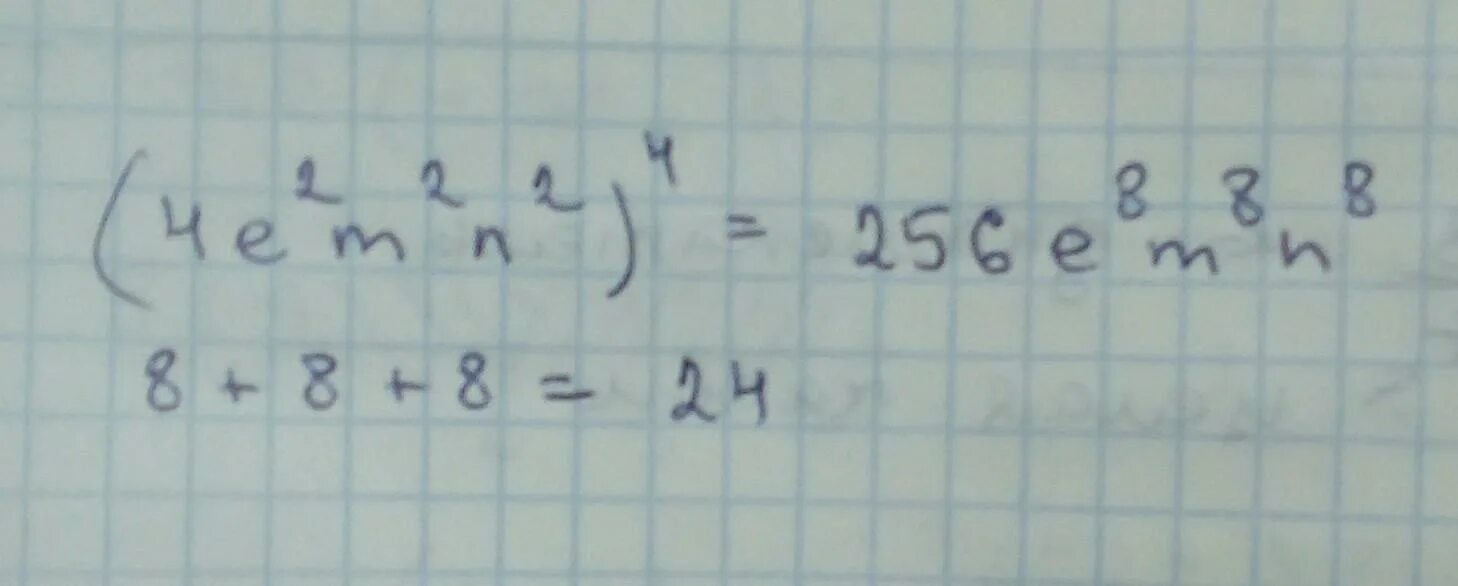 (4e²m²n²)⁴ = 256e⁸m⁸n⁸
8 + 8 + 8 = 24